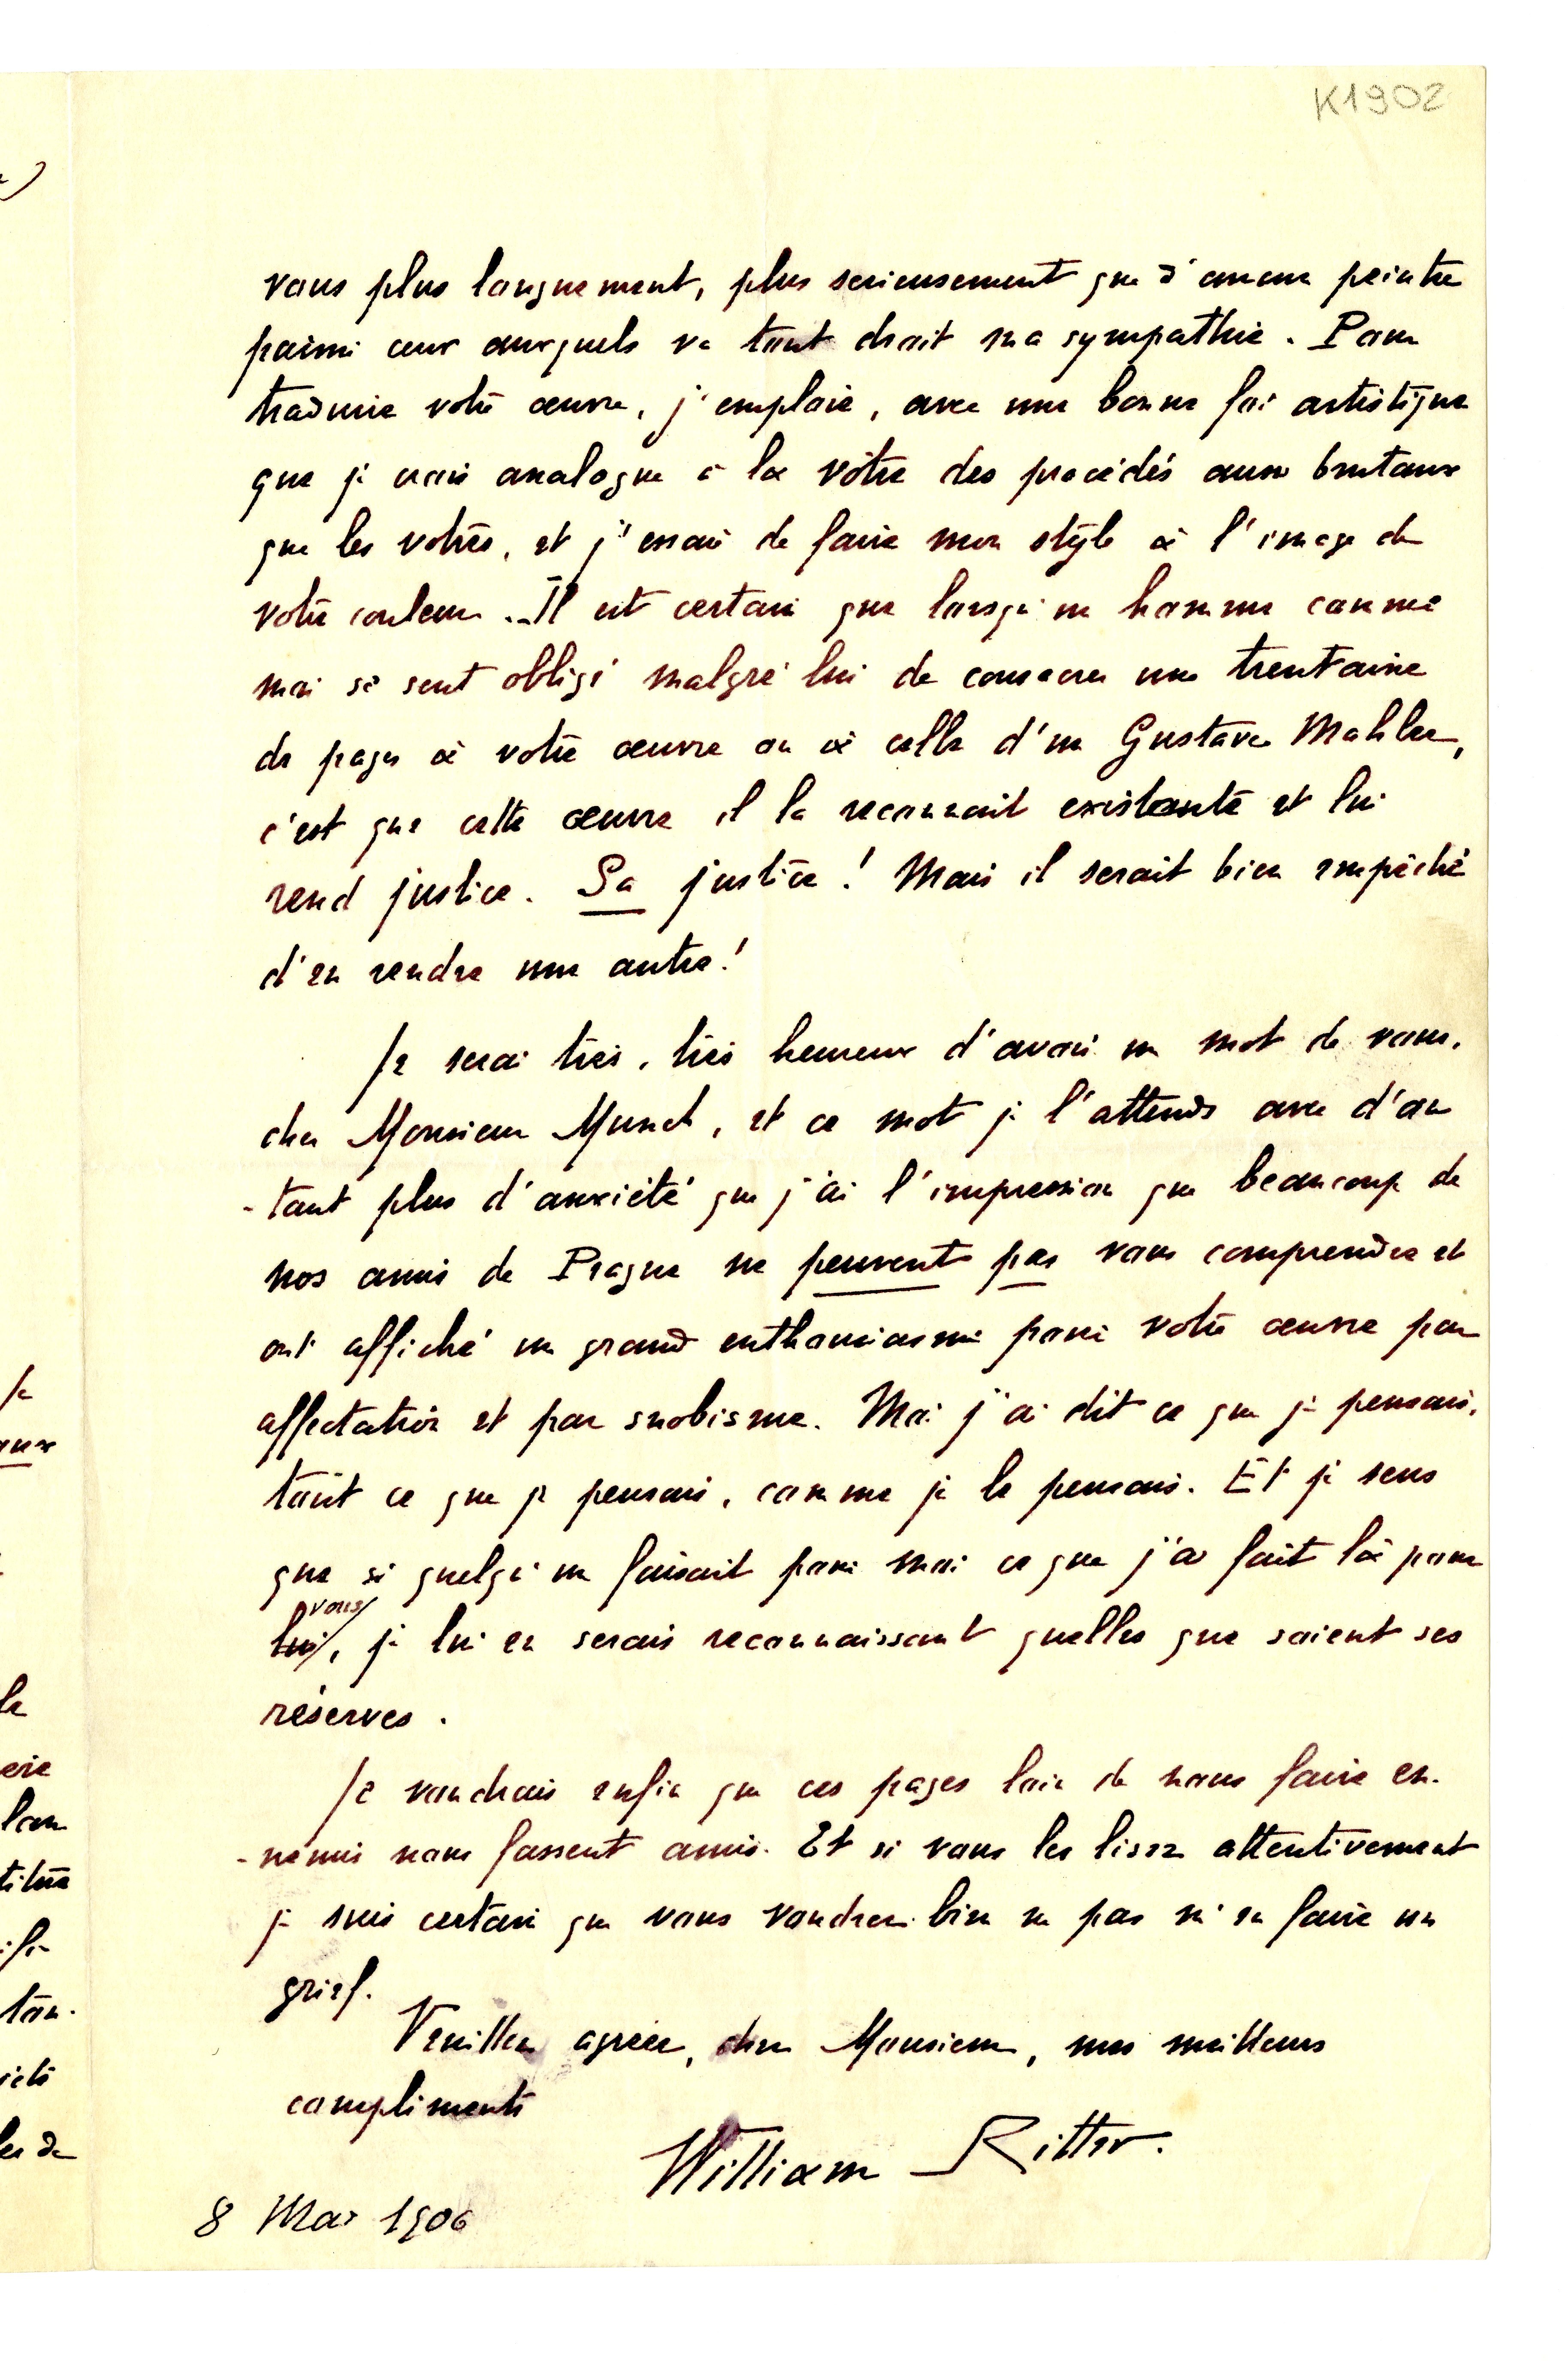 K1902
vous plus longuement, plus serieusement que d'aucun peintre
parmi ceux auxquels va tout droit ma sympathie. Pour
traduire votre œuvre, j'emploie, avec une bonne foi artistique
que je crois analogue à la vôtre des procédés aussi brutaux
que les votres, et j'essaie de faire mon style à l'image de
votre couleur. _ Il est certain que lorsqu'un homme comme
moi se sent obligé malgré lui de consacrer une trentaine
de pages à votre œuvre ou à celle d'un Gustave Mahler,
c'est que cette œuvre il la reconnait existante et lui
rend justice. Sa justice! Mais il serait bien empêché
d'en rendre une autre!
Je serai très, très heureux d'avoir un mot de vous,
cher Monsieur Munch, et ce mot je l'attends avec d'au
-tant plus d'anxiété que j'ai l'impression que beaucoup de
nos amis de Prague ne peuvent pas vous comprendre et
ont affiché un grand enthousiasme pour votre œuvre par
affectation et par snobisme. Moi j'ai dit ce que je pensais,
tout ce que je pensais, comme je le pensais. Et je sens
que si quelqu'un faisait pour moi ce que j'ai fait là pour
vous
lui, je lui en serais reconnaissant quelles que soient ses
réserves.
Je voudrais enfin que ces pages loin de nous faire en-
-nemis nous fassent amis. Et si vous les lisez attentivement
je suis certain que vous voudrez bien ne pas m'en faire un
grief.
Veuillez agréer, cher Monsieur, mes meilleurs
compliments
William Ritter.
8 Mai 1906